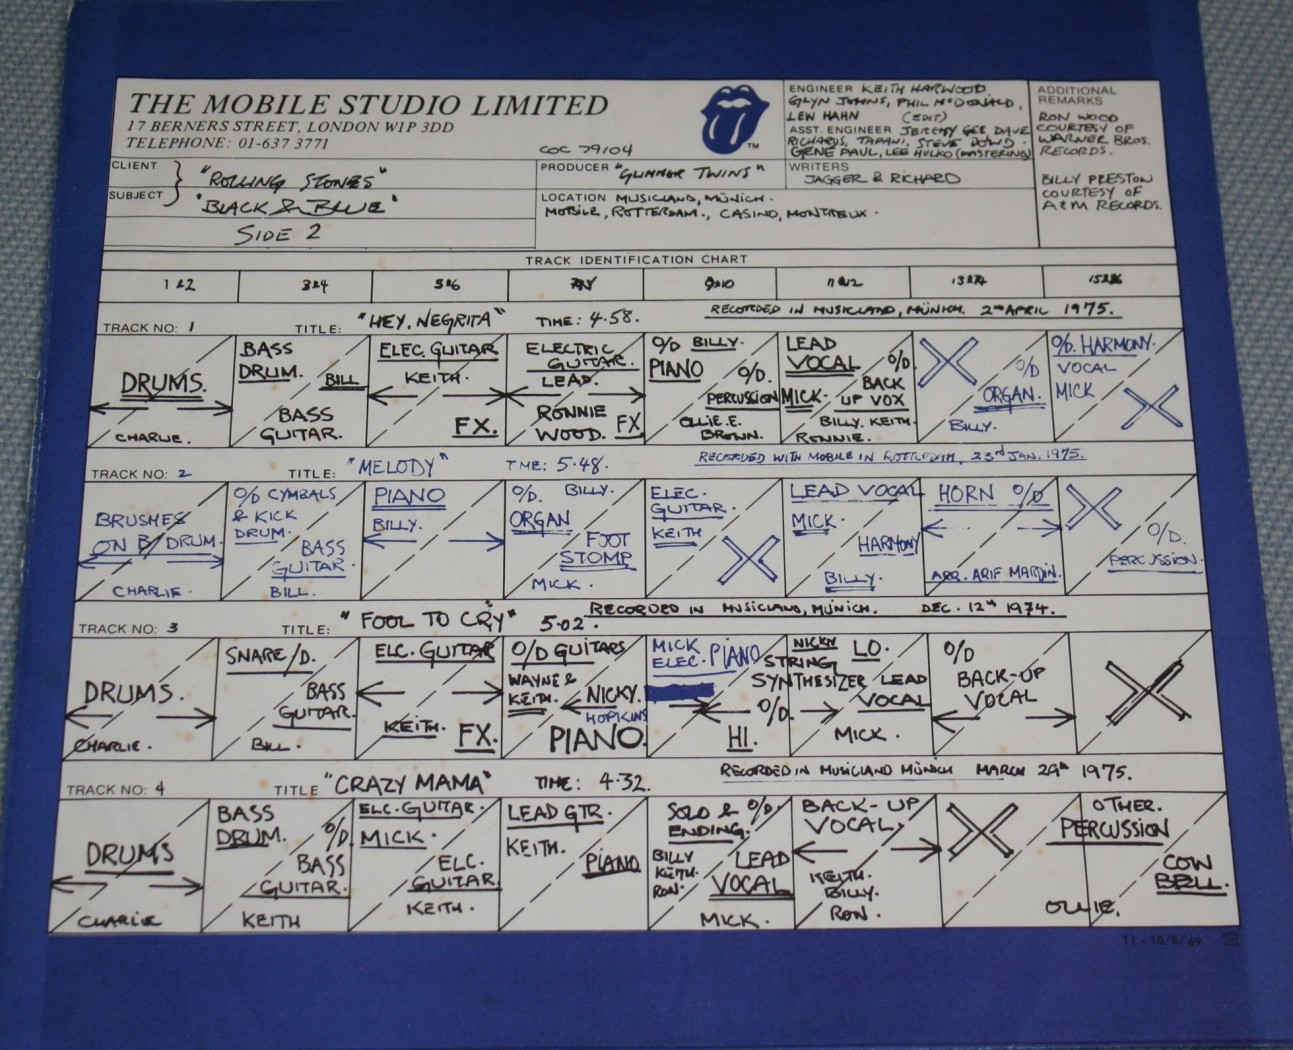 THE MOBILE STUDIO LIMITED
17 BERNERS STREET, LONDON W1P 3DD
TELEPHONE: 01-637 3771
COC 79104
TM
ENGINEER KEITH HARWOOD,
GLYN JOHNS, PHIL McDONALD,
LEW HAHN (EDIT)
ASST. ENGINEER JEREMY GEE, DAVE
RICHARDS, TAPANI, STEVE DOWD.
GENE PAUL, LEE HULKO (MASTERING)
ADDITIONAL
REMARKS
RON WOOD
COURTESY OF
WARNER BROS.
RECORDS.
BILLY PRESTON
COURTESY OF
A&M RECORDS.
CLIENT
"ROLLING STONES"
SUBJECT
"BLACK & BLUE"
SIDE 2
PRODUCER "GLIMMER TWINS"
WRITERS
JAGGER & RICHARD
LOCATION MUSICLAND, MÜNICH.
MOBILE, ROTTERDAM., CASINO, MONTREUX.
TRACK IDENTIFICATION CHART
1&2 3&4 5&6 7&8 9&10 11&12 13&14 15&16
TRACK NO: 1 TITLE: "HEY, NEGRITA" TIME: 4.58. RECORDED IN MUSICLAND, MÜNICH. 2nd APRIL 1975.
DRUMS.
CHARLIE.
BASS
DRUM.
BILL
BASS
GUITAR.
ELEC. GUITAR
KEITH.
FX.
ELECTRIC
GUITAR.
LEAD.
RONNIE
WOOD.
FX
O/D BILLY.
PIANO
O/D.
PERCUSSION
OLLIE. E.
BROWN.
LEAD
VOCAL
MICK.
O/D
BACK
UP VOX
BILLY. KEITH.
RONNIE.
O/D
ORGAN.
BILLY.
O/D. HARMONY.
VOCAL
MICK
TRACK NO: 2 TITLE: "MELODY" TIME: 5.48. RECORDED WITH MOBILE IN ROTTERDAM, 23rd JAN. 1975.
BRUSHES
ON B/DRUM.
CHARLIE.
O/D CYMBALS
& KICK
DRUM.
BASS
GUITAR.
BILL.
PIANO
BILLY.
O/D. BILLY.
ORGAN
FOOT
STOMP
MICK.
ELEC.
GUITAR.
KEITH
LEAD VOCAL
MICK.
HARMONY
BILLY.
HORN O/D
ARR. ARIF MARDIN.
O/D.
PERCUSSION.
TRACK NO: 3 TITLE: "FOOL TO CRY" 5.02. RECORDED IN MUSICLAND, MÜNICH. DEC. 12th 1974.
DRUMS.
CHARLIE.
SNARE/D.
BASS
GUITAR.
BILL.
ELC. GUITAR
KEITH.
FX.
O/D GUITARS
WAYNE &
KEITH.
NICKY.
HOPKINS
PIANO.
MICK
ELEC. PIANO
NICKY
STRING
SYNTHESIZER
O/D.
HI.
LO.
LEAD
VOCAL
MICK.
O/D
BACK-UP
VOCAL
TRACK NO: 4 TITLE "CRAZY MAMA" TIME: 4.32. RECORDED IN MUSICLAND MÜNICH MARCH 29th 1975.
DRUMS
CHARLIE
BASS
DRUM.
O/D
BASS
GUITAR.
KEITH
ELC. GUITAR.
MICK.
ELC.
GUITAR.
KEITH.
LEAD GTR.
KEITH.
PIANO
SOLO & O/D.
ENDING.
BILLY
KEITH.
RON.
LEAD
VOCAL
MICK.
BACK-UP
VOCAL.
KEITH.
BILLY.
RON.
OTHER.
PERCUSSION
OLLIE.
COW
BELL.
T1-10/8/69